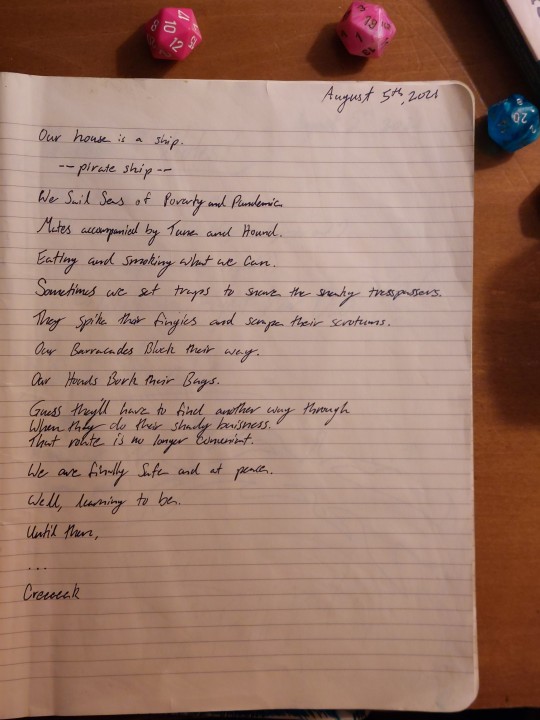 August 5th, 2021
Our house is a ship.
-- pirate ship --
We Sail Seas of Poverty and Pandemics
Mates accompanied by Tune and Hound.
Eating and smoking what we can.
Sometimes we set traps to snare the sneaky trespassers.
They spike their fingies and scrape their scrotums.
Our Barracades Block their way.
Our Hounds Bark their Bays.
Guess they'll have to find another way through
When they do their shady buisness.
That route is no longer convenient.
We are finally Safe and at peace.
Well, learning to be.
Until then,
...
Creeeeak
17
10
12
8
19
1
20